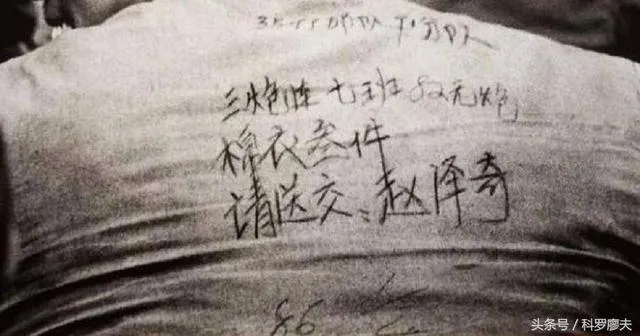 三炮连七班82无炮
棉衣叁件
请送交:赵泽奇
86
头条号 / 科罗廖夫